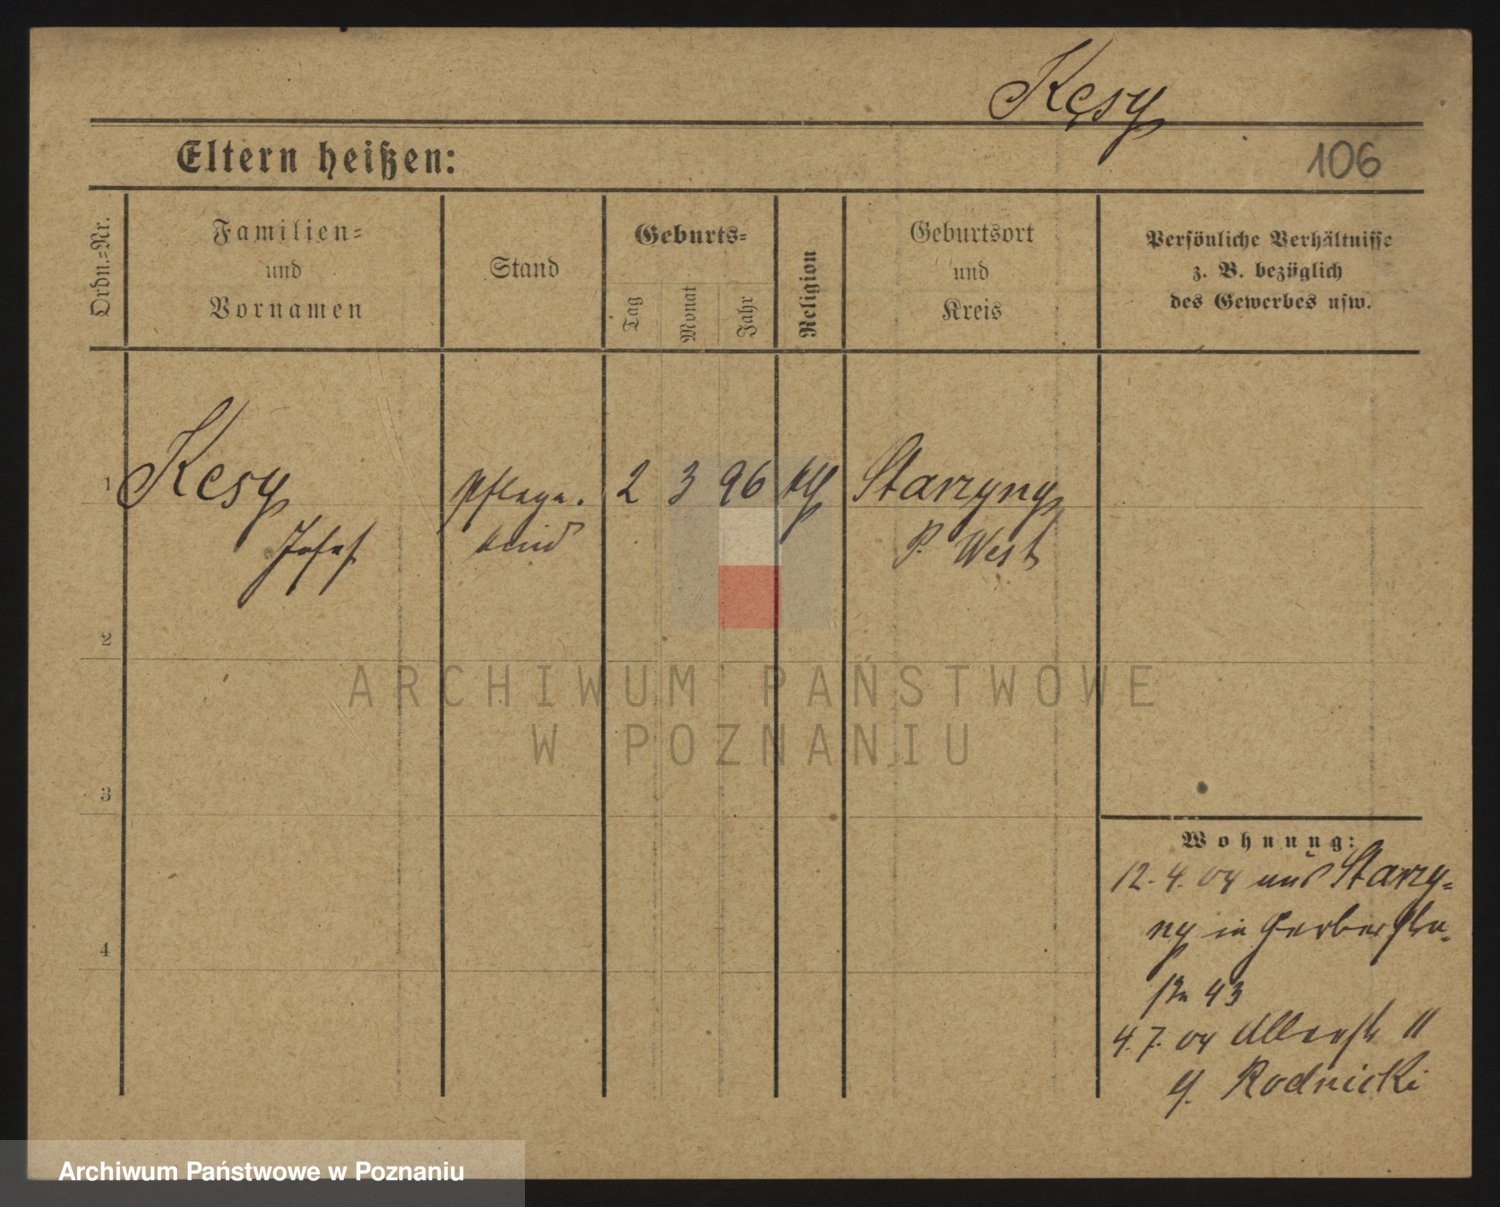 Kęsy
Eltern heißen:
106
Ordn.-Nr.
Familien-
und
Vornamen
Stand
Geburts-
Tag
Monat
Jahr
Religion
Geburtsort
und
Kreis
Persönliche Verhältnisse
z. B. bezüglich
des Gewerbes usw.
1
Kesy
Josef
Pflege-
kind
2 3 96
kth
Starzyny
P. West
2
3
4
Wohnung:
12.4.04 aus Starzy-
ny in Gerberstra-
ße 43
4.7.04 Allerh 11
b. Rodnicki
ARCHIWUM PAŃSTWOWE
W POZNANIU
Archiwum Państwowe w Poznaniu